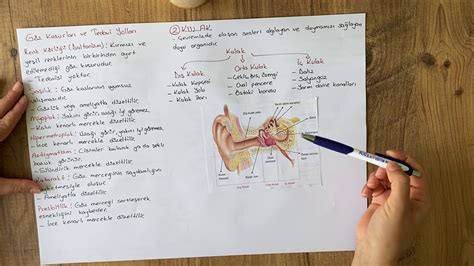 Göz Kusurları ve Tedavi Yolları
Renk Körlüğü (Daltonizm): Kırmızı ve
yeşil renklerinin birbirinden ayırt
edilemediği göz kusurudur.
- Tedavisi yoktur.
Şaşılık: Göz kaslarının uyumsuz
çalışmasıdır.
- Gözlük veya ameliyatla düzeltilir.
Miyopluk: Yakını iyi, uzağı iyi görmez.
- Kalın kenarlı mercekle düzeltilir.
Hipermetropluk: Uzağı iyi görür, yakını iyi görmez.
- İnce kenarlı mercekle düzeltilir.
Astigmatizm: Cisimler bulanık ya da şekli
bozuk görünür.
- Silindirik mercekle düzeltilir.
Katarakt: Göz merceğinin saydamlığını
kaybetmesiyle oluşur.
- Ameliyatla düzeltilir.
Presbitlik: Göz merceği sertleşerek
esnekliğini kaybeder.
- İnce kenarlı mercekle düzeltilir.
2 KULAK
- Çevremizde oluşan sesleri algılayan ve duymamızı sağlayan
duyu organıdır.
Kulak
Dış Kulak
- Kulak Kepçesi
- Kulak Yolu
- Kulak Zarı
Orta Kulak
- Çekiç, örs, özengi
- Oval pencere
- Östaki borusu
İç Kulak
- Dalız
- Salyangoz
- Yarım daire kanalları